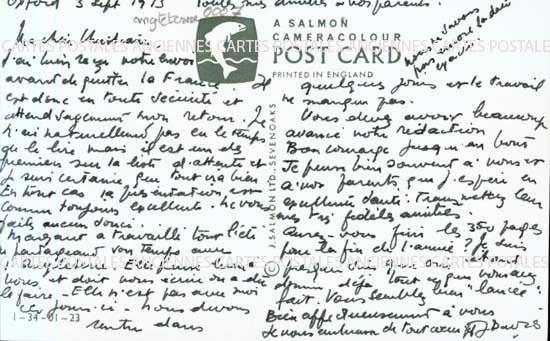 Oxford 3 Sept 1973
Toutes mes amitiés à vos parents.
Angleterre
Ma chère Christiane
J'ai bien reçu votre envoi
avant de quitter la France. Il
est donc en toute sécurité et
attend sagement mon retour. Je
n'ai naturellement pas eu le temps
de le lire mais il est un des
premiers sur la liste d'attente et
je suis certaine que tout ira bien.
En tout cas la présentation est
comme toujours excellente. Ne vous
faites aucun souci.
a travaillé tout l'été
vous et doit vous écrire ou a dû
le faire - Elle n'est pas avec moi
ces jours-ci - nous devons
rentrer dans
1-34-01-23
A SALMON
CAMERACOLOUR
POST CARD
PRINTED IN ENGLAND
J. SALMON LTD., SEVENOAKS
©
quelques jours et le travail
ne manque pas.
Vous devez avoir beaucoup
avancé votre rédaction
Bon courage jusqu'au bout
Je pense bien souvent à vous et
à vos parents que j'espère en
excellente santé. Transmettez leur
mes très fidèles amitiés.
Aurez-vous fini les 350 pages
pour la fin de l'année ? Je suis
presque
déjà tout ce que vous avez
fait. Vous semblez bien "lancée".
Bien affectueusement à vous
Je vous embrasse de tout cœur
CARTES POSTALES ANCIENNES CARTES POSTALES ANCIENNES CARTES POSTALES